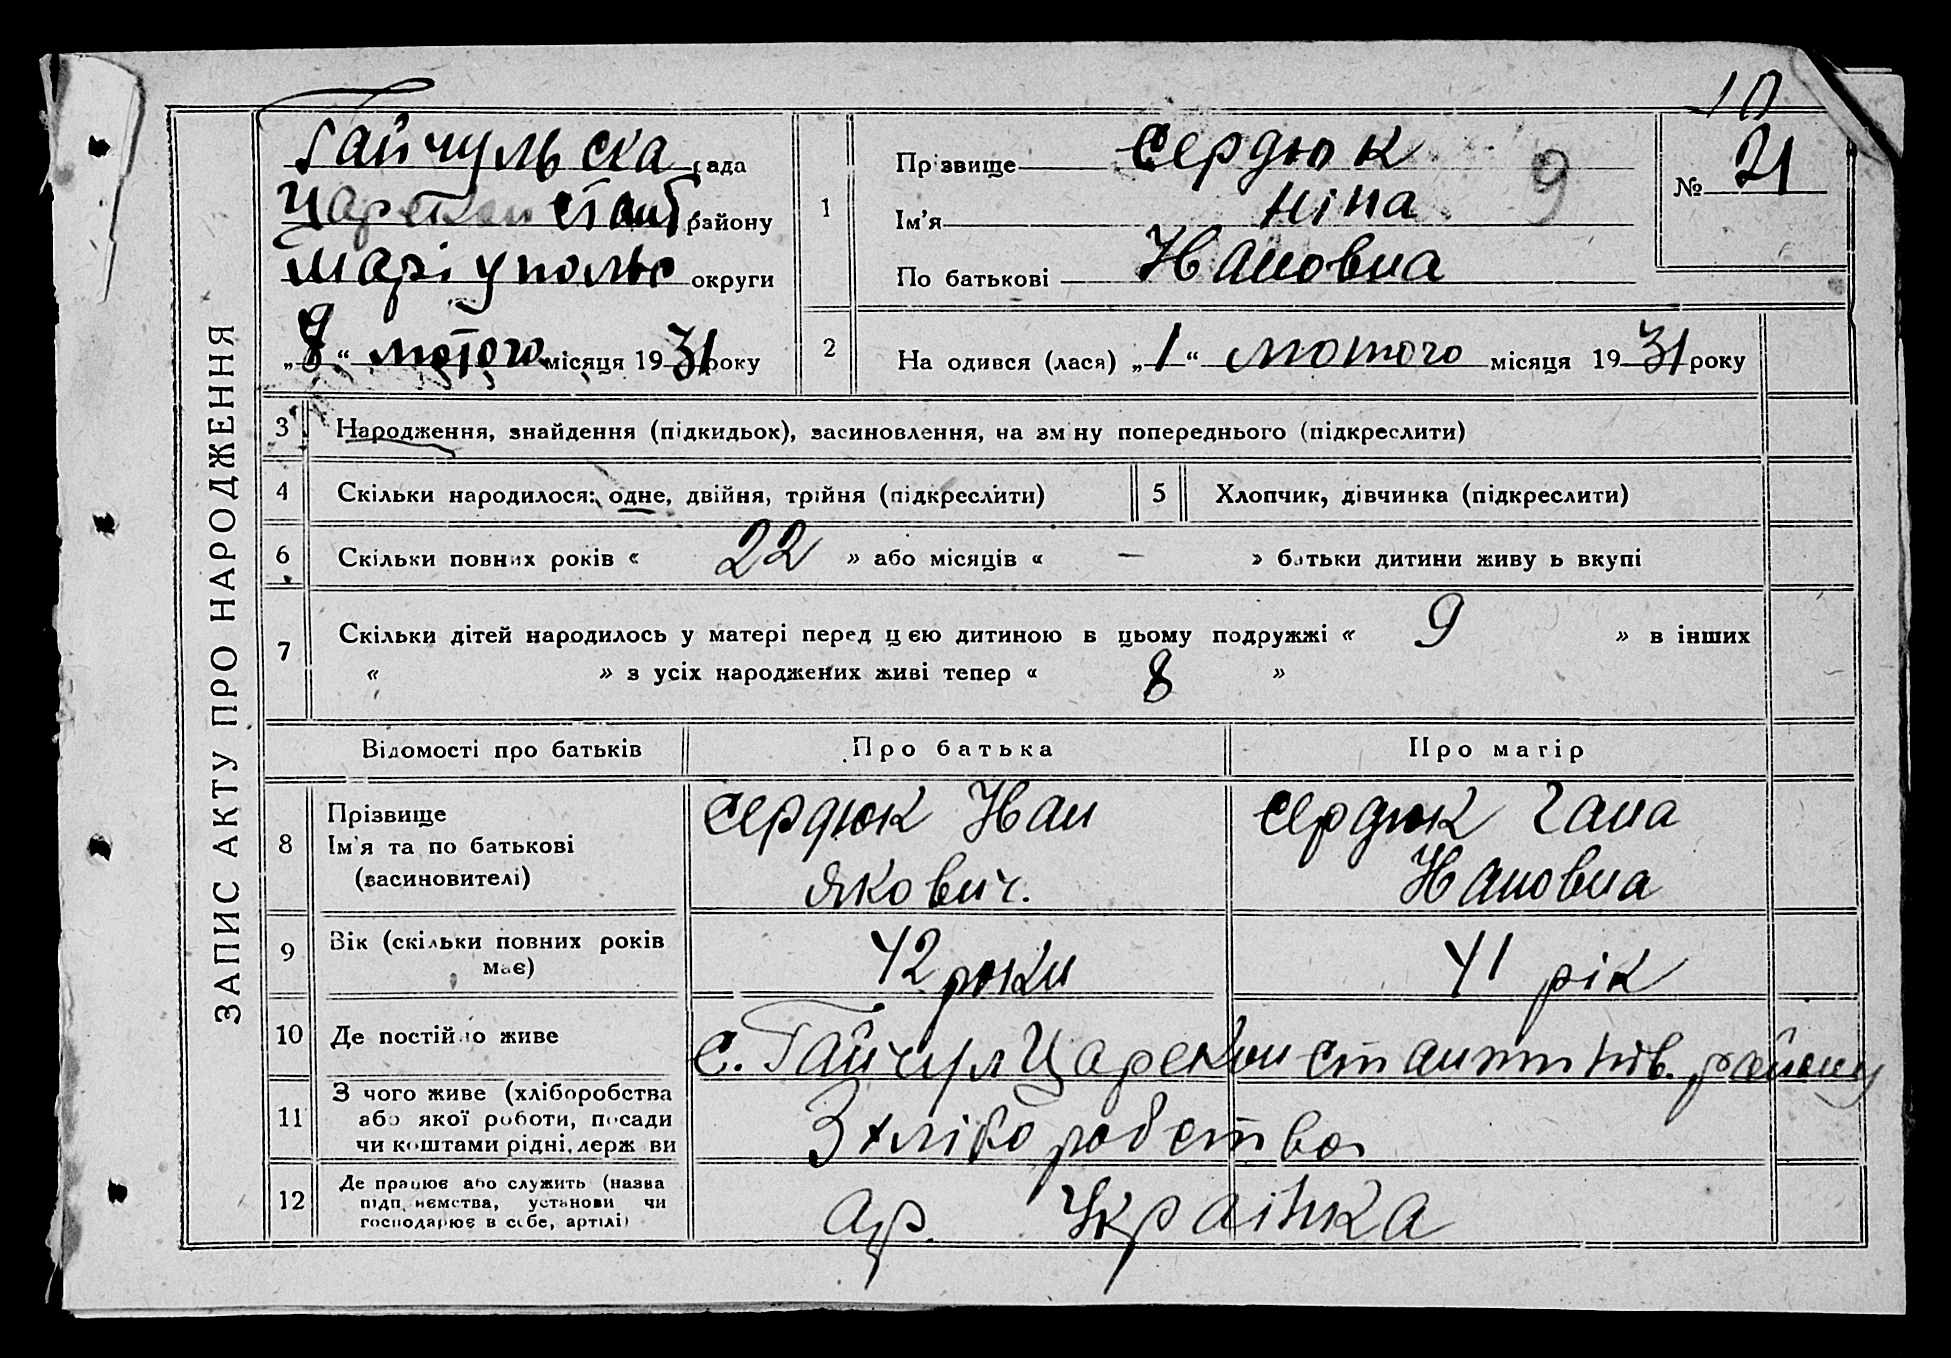 ЗАПИС АКТУ ПРО НАРОДЖЕННЯ
10
Гайчульска рада
району
Маріупольс округи
„8“ лютого місяця 1931 року
1
Прізвище Сердюк
Ім'я Ніна
9
По батькові Ивановна
№ 21
2
На одився (лася) „1“ лютого місяця 1931 року
3 Народження, знайдення (підкидьок), засиновлення, на зміну попереднього (підкреслити)
4 Скільки народилося: одне, двійня, трійня (підкреслити)
5 Хлопчик, дівчинка (підкреслити)
6 Скільки повних років « 22 » або місяців « — » батьки дитини живу ь вкупі
7 Скільки дітей народилось у матері перед цією дитиною в цьому подружжі « 9 » в інших
« » з усіх народжених живі тепер « 8 »
Відомості про батьків Про батька Про матір
8 Прізвище
Ім'я та по батькові
(засиновителі)
Сердюк Иван
Якович.
Сердюк Гана
Ивановна
9 Вік (скільки повних років
має)
42 роки
41 рік
10 Де постійно живе
с. Гайчул Царекон стантинів. району
11 З чого живе (хліборобства
або якої роботи, посади
чи коштами рідні, держ ви
З хліборобства
12 Де працює або служить (назва
підп иємства, установи чи
господарює в себе, артілі)
ар. Украінка